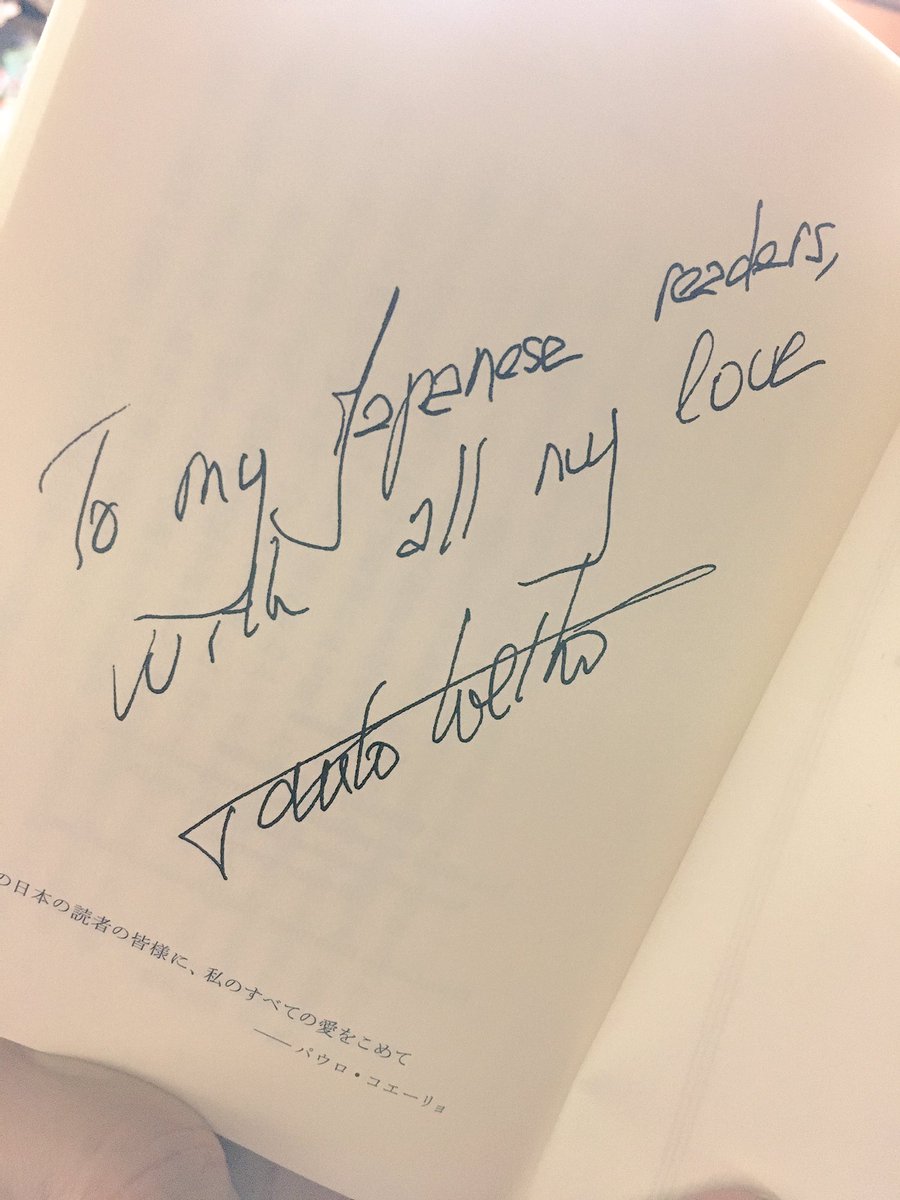 To my Japanese readers,
with all my love
Paulo Coelho
の日本の読者の皆様に、私のすべての愛をこめて
――パウロ・コエーリョ